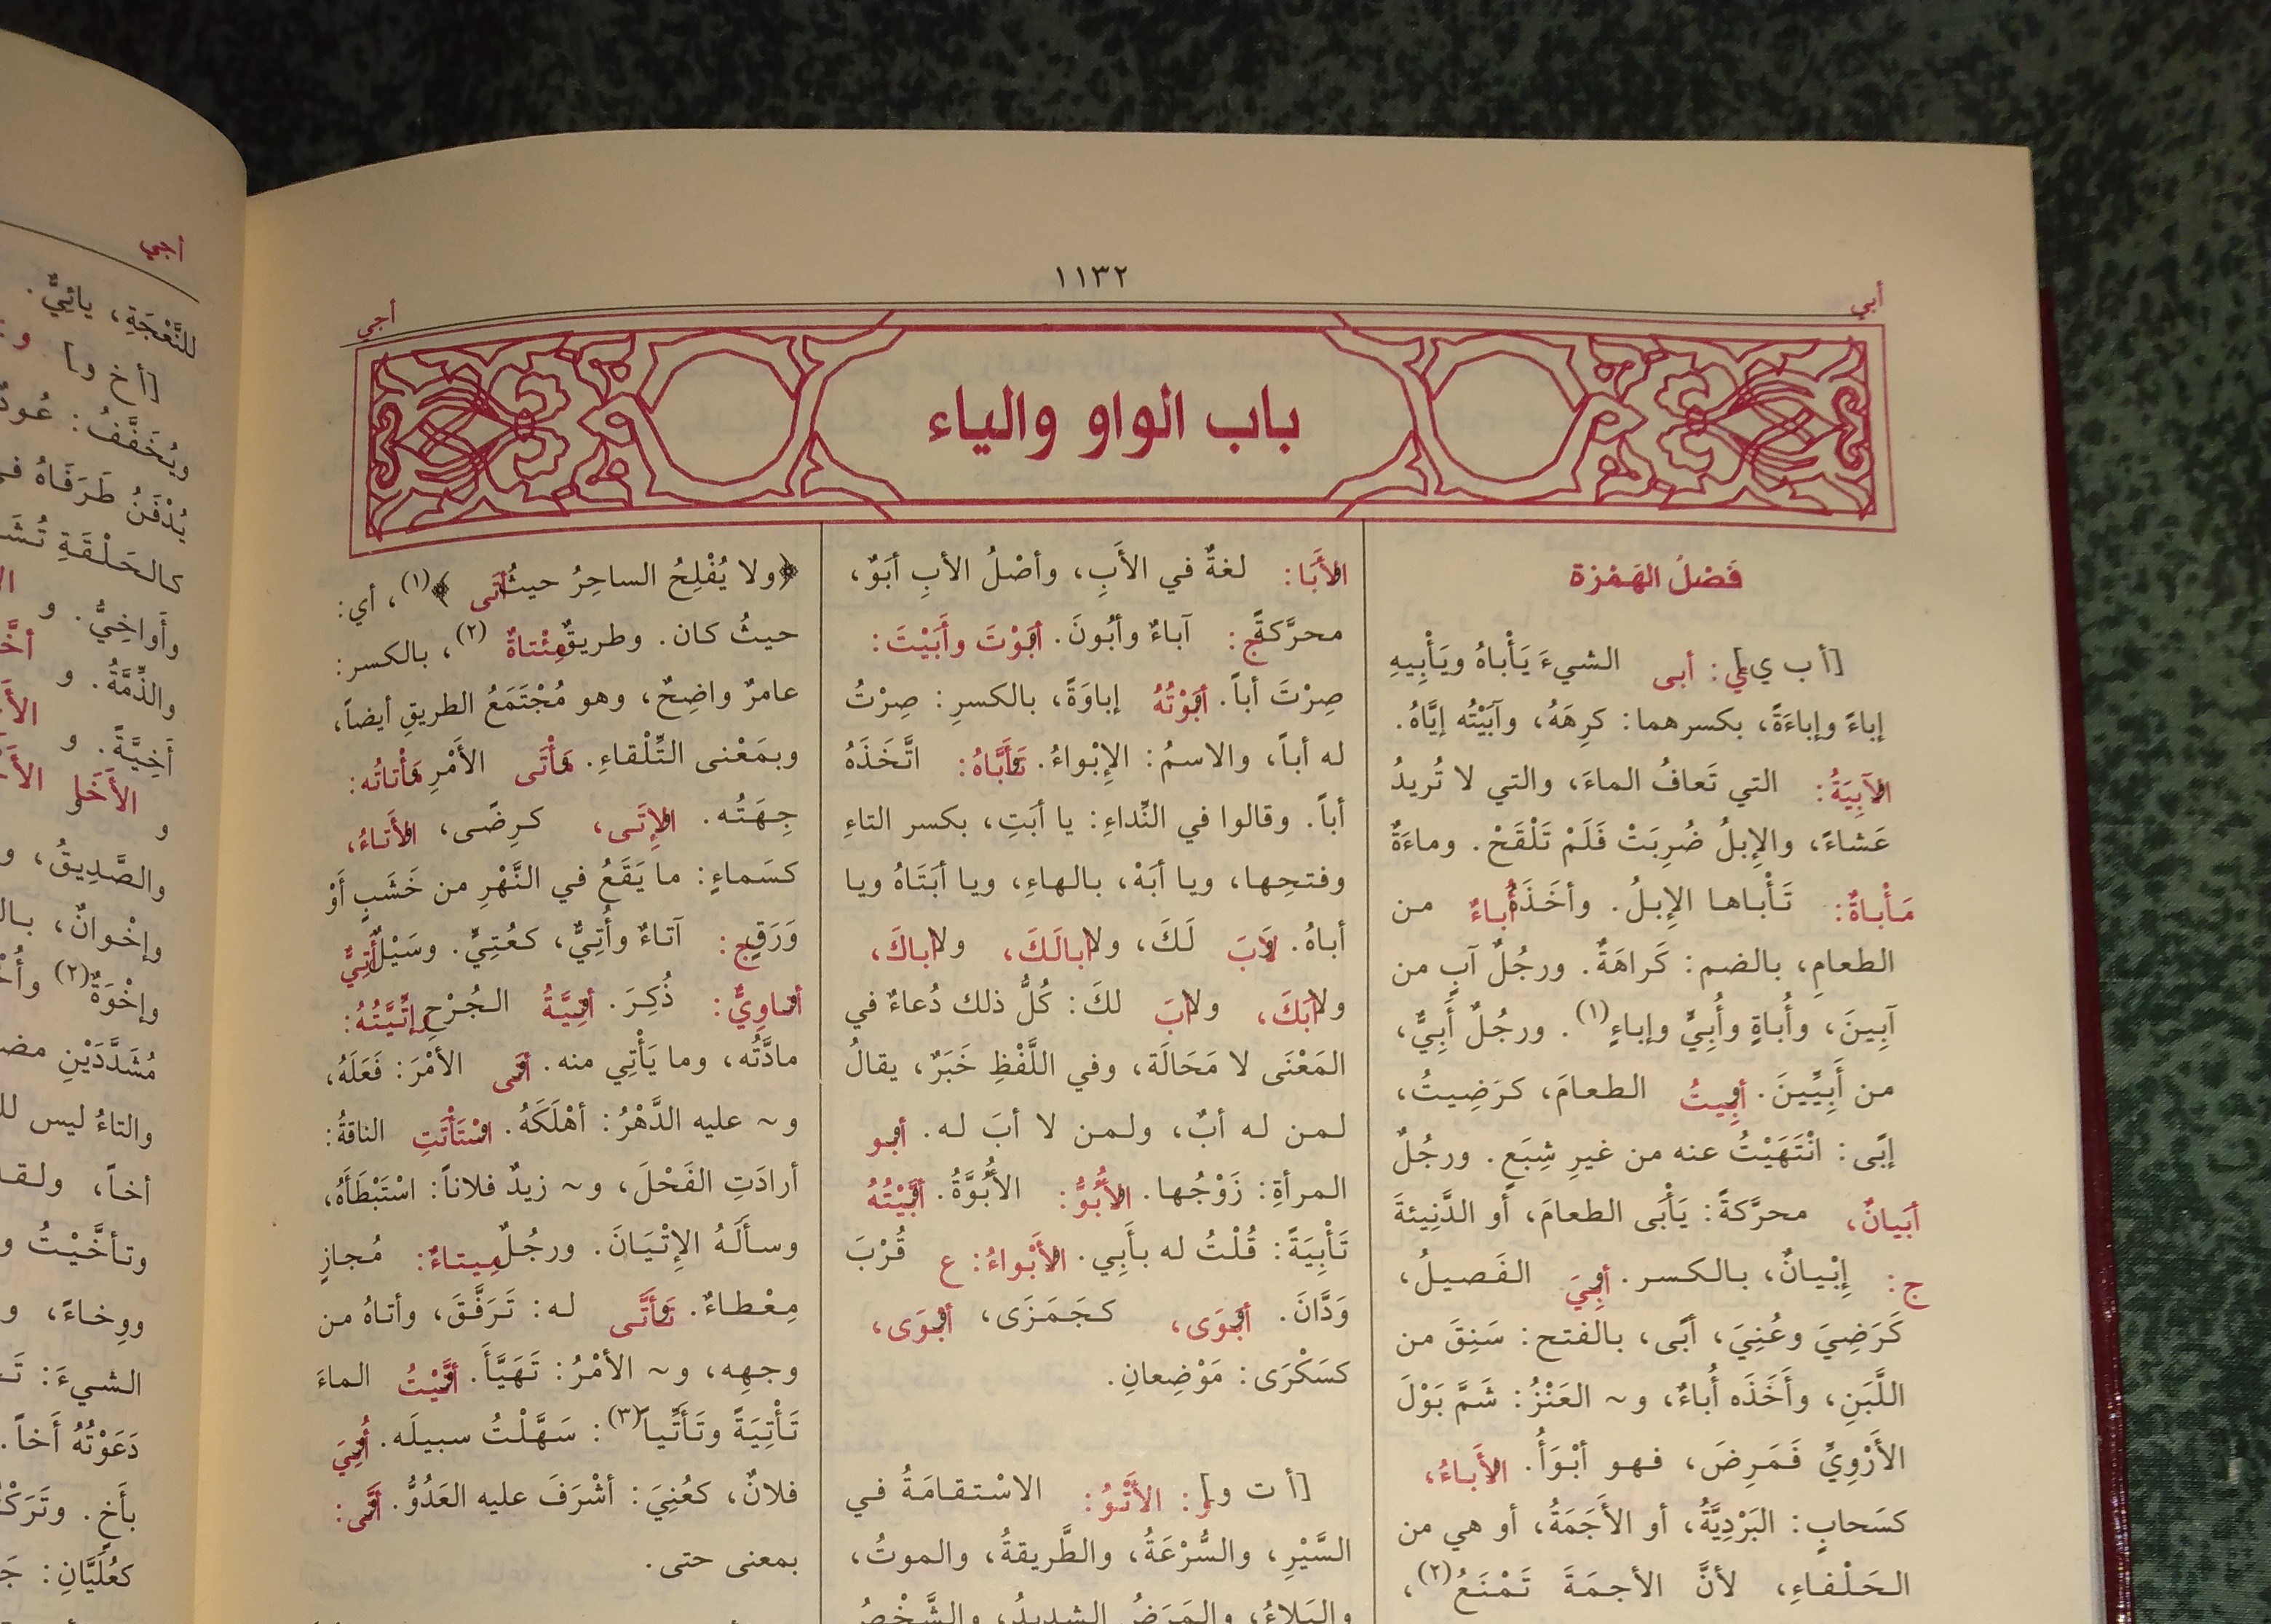 ١١٣٢
أبي
أجي
باب الواو والياء
فَصْلُ الهَمْزة
[أ ب ي] ي: أبى الشيءَ يَأْباهُ ويَأْبِيهِ
إباءً وإباءَةً، بكسرهما: كرِهَهُ، وآبَيْتُه إيَّاهُ.
والآبِيَةُ: التي تَعافُ الماءَ، والتي لا تُريدُ
عَشاءً، والإِبلُ ضُرِبَتْ فَلَمْ تَلْقَحْ. وماءَةٌ
مَأْباةٌ: تَأْباها الإِبلُ. وأخَذَهُ أُباءٌ من
الطعامِ، بالضم: كَراهَةٌ. ورجُلٌ آبٍ من
آبِينَ، وأُباةٍ وأُبِيٍّ وإباءٍ(١). ورجُلٌ أَبِيٌّ،
من أَبِيِّينَ. وأبِيتُ الطعامَ، كرَضِيتُ،
إبًى: انْتَهَيْتُ عنه من غيرِ شِبَعٍ. ورجُلٌ
أبَيانٌ، محرَّكةً: يَأْبَى الطعامَ، أو الدَّنِيئةَ
ج: إِبْيانٌ، بالكسر. وأبِيَ الفَصيلُ،
كَرَضِيَ وعُنِيَ، أبًى، بالفتح: سَنِقَ من
اللَّبَنِ، وأَخَذَه أُباءٌ، و~ العَنْزُ: شَمَّ بَوْلَ
الأَرْوِيِّ فَمَرِضَ، فهو أبْوَأُ. والأَباءُ،
كسَحابٍ: البَرْدِيَّةُ، أو الأَجَمَةُ، أو هي من
الحَلْفاءِ، لأنَّ الأجمَةَ تَمْنَعُ(٢)،
والأَبَا: لغةٌ في الأَبِ، وأصْلُ الأبِ أبَوٌ،
محرَّكةً ج: آباءٌ وأبُونَ. وأبَوْتَ وأَبَيْتَ:
صِرْتَ أباً. وأبَوْتُهُ إباوَةً، بالكسرِ: صِرْتُ
له أباً، والاسمُ: الإبْواءُ. وتَأَبَّاهُ: اتَّخَذَهُ
أباً. وقالوا في النِّداءِ: يا أبَتِ، بكسر التاءِ
وفتحِها، ويا أبَهْ، بالهاءِ، ويا أبَتَاهُ ويا
أباهُ. ولابَ لَكَ، ولا ابالَكَ، ولا اباكَ،
ولا ابَكَ، ولا ابَ لكَ: كُلُّ ذلك دُعاءٌ في
المَعْنَى لا مَحَالَة، وفي اللَّفْظِ خَبَرٌ، يقالُ
لمن له أبٌ، ولمن لا أبَ له. وأبو
المرأةِ: زَوْجُها. والأُبُوُّ: الأُبُوَّةُ. وأبَّيْتُهُ
تَأْبِيَةً: قُلْتُ له بأَبِي. والأَبْواءُ: ع قُرْبَ
وَدَّانَ. وأبَوَى، كجَمَزَى، وأبْوَى،
كسَكْرَى: مَوْضِعانِ.
[أ ت و] و: الأَتْوُ: الاسْتقامَةُ في
السَّيْرِ، والسُّرْعَةُ، والطَّريقةُ، والموتُ،
والبَلاءُ، والمَرَضُ الشديدُ، والشَّخْصُ
﴿ولا يُفْلِحُ الساحِرُ حيثُ أتَى﴾(١)، أي:
حيثُ كان. وطريقٌ مِئْتاةٌ(٢)، بالكسر:
عامرٌ واضِحٌ، وهو مُجْتَمَعُ الطريقِ أيضاً،
وبمَعْنى التِّلْقاءِ. ومَأْتَى الأَمْرِ ومَأْتاتُه:
جِهَتُه. والإتَى، كرِضًى، والأَتاءُ،
كسَماءٍ: ما يَقَعُ في النَّهْرِ من خَشَبٍ أَوْ
وَرَقٍ ج: آتاءٌ وأُتِيٌّ، كعُتِيٍّ. وسَيْلٌ أَتِيٌّ
وأتاوِيٌّ: ذُكِرَ. وأتِيَّةُ الجُرْحِ وإتِّيَّتُهُ:
مادَّتُه، وما يَأْتِي منه. وأتَى الأمْرَ: فَعَلَهُ،
و~ عليه الدَّهْرُ: أهْلَكَهُ. واسْتَأْتَتِ الناقةُ:
أرادَتِ الفَحْلَ، و~ زيدٌ فلاناً: اسْتَبْطَأَهُ،
وسأَلَهُ الإِتْيَانَ. ورجُلٌ مِيتاءٌ: مُجازٍ
مِعْطاءٌ. وتَأَتَّى له: تَرَفَّقَ، وأتاهُ من
وجهِه، و~ الأمْرُ: تَهَيَّأَ. وأتَّيْتُ الماءَ
تَأْتِيَةً وتَأَتِّياً(٣): سَهَّلْتُ سبيلَه. وأُتِيَ
فلانٌ، كعُنِيَ: أشْرَفَ عليه العَدُوُّ. وأتَّى:
بمعنى حتى.
أجي
للنَّعْجَةِ، يائِيٌّ.
[أ خ و] و:
ويُخَفَّفُ: عُودٌ
يُدْفَنُ طَرَفَاهُ
كالحَلْقَةِ
وأَواخِيُّ. و
والذِّمَّةُ. و
أَخِيَّةً. و
و
والصَّدِيقُ،
وإخْوانٌ،
وإخْوَةٌ(٢)
مُشَدَّدَيْنِ
والتاءُ ليس
أخاً،
وتأخَّيْتُ
ووِخاءً،
الشيءَ:
دَعَوْتُهُ أَخاً.
بأَخٍ.
كعُلَيَّانِ: